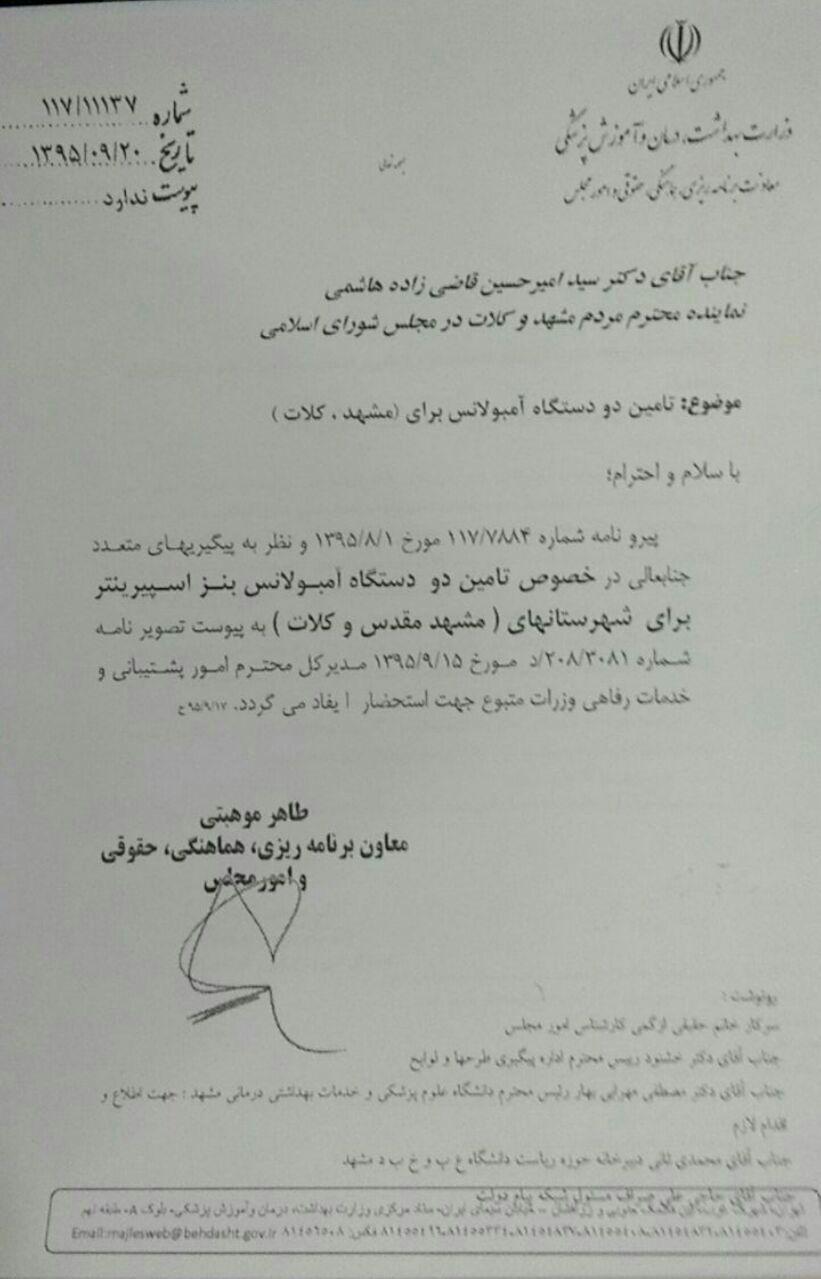 جمهوری اسلامی ایران
وزارت بهداشت، درمان و آموزش پزشکی
معاونت برنامه ریزی، هماهنگی، حقوقی و امور مجلس
بسمه تعالی
شماره ۱۱۷/۱۱۱۳۷
تاریخ ۱۳۹۵/۰۹/۲۰
پیوست ندارد
جناب آقای دکتر سید امیرحسین قاضی زاده هاشمی
نماینده محترم مردم مشهد و کلات در مجلس شورای اسلامی
موضوع: تامین دو دستگاه آمبولانس برای (مشهد ، کلات )
با سلام و احترام؛
پیرو نامه شماره ۱۱۷/۷۸۸۴ مورخ ۱۳۹۵/۸/۱ و نظر به پیگیریهای متعدد
جنابعالی در خصوص تامین دو دستگاه آمبولانس بنز اسپیرینتر
برای شهرستانهای ( مشهد مقدس و کلات ) به پیوست تصویر نامه
شماره ۲۰۸/۳۰۸۱/د مورخ ۱۳۹۵/۹/۱۵ مدیرکل محترم امور پشتیبانی و
خدمات رفاهی وزرات متبوع جهت استحضار ایفاد می گردد. ۹۵/۹/۱۷ع
طاهر موهبتی
معاون برنامه ریزی، هماهنگی، حقوقی
و امورمجلس
رونوشت :
سرکار خانم حقیقی ازگمی کارشناس امور مجلس
جناب آقای دکتر خشنود رییس محترم اداره پیگیری طرحها و لوایح
جناب آقای دکتر مصطفی مهرابی بهار رئیس محترم دانشگاه علوم پزشکی و خدمات بهداشتی درمانی مشهد : جهت اطلاع و
اقدام لازم
جناب آقای محمدی ثانی دبیرخانه حوزه ریاست دانشگاه ع پ و خ ب د مشهد
جناب آقای حاجی علی صراف مسئول شبکه پیام دولت
خیابان سیمای ایران، ستاد مرکزی وزارت بهداشت، درمان وآموزش پزشکی، بلوک A، طبقه نهم
فکس: ۸۱۴۵۶۵۰۸ Email:majlesweb@behdasht.gov.ir